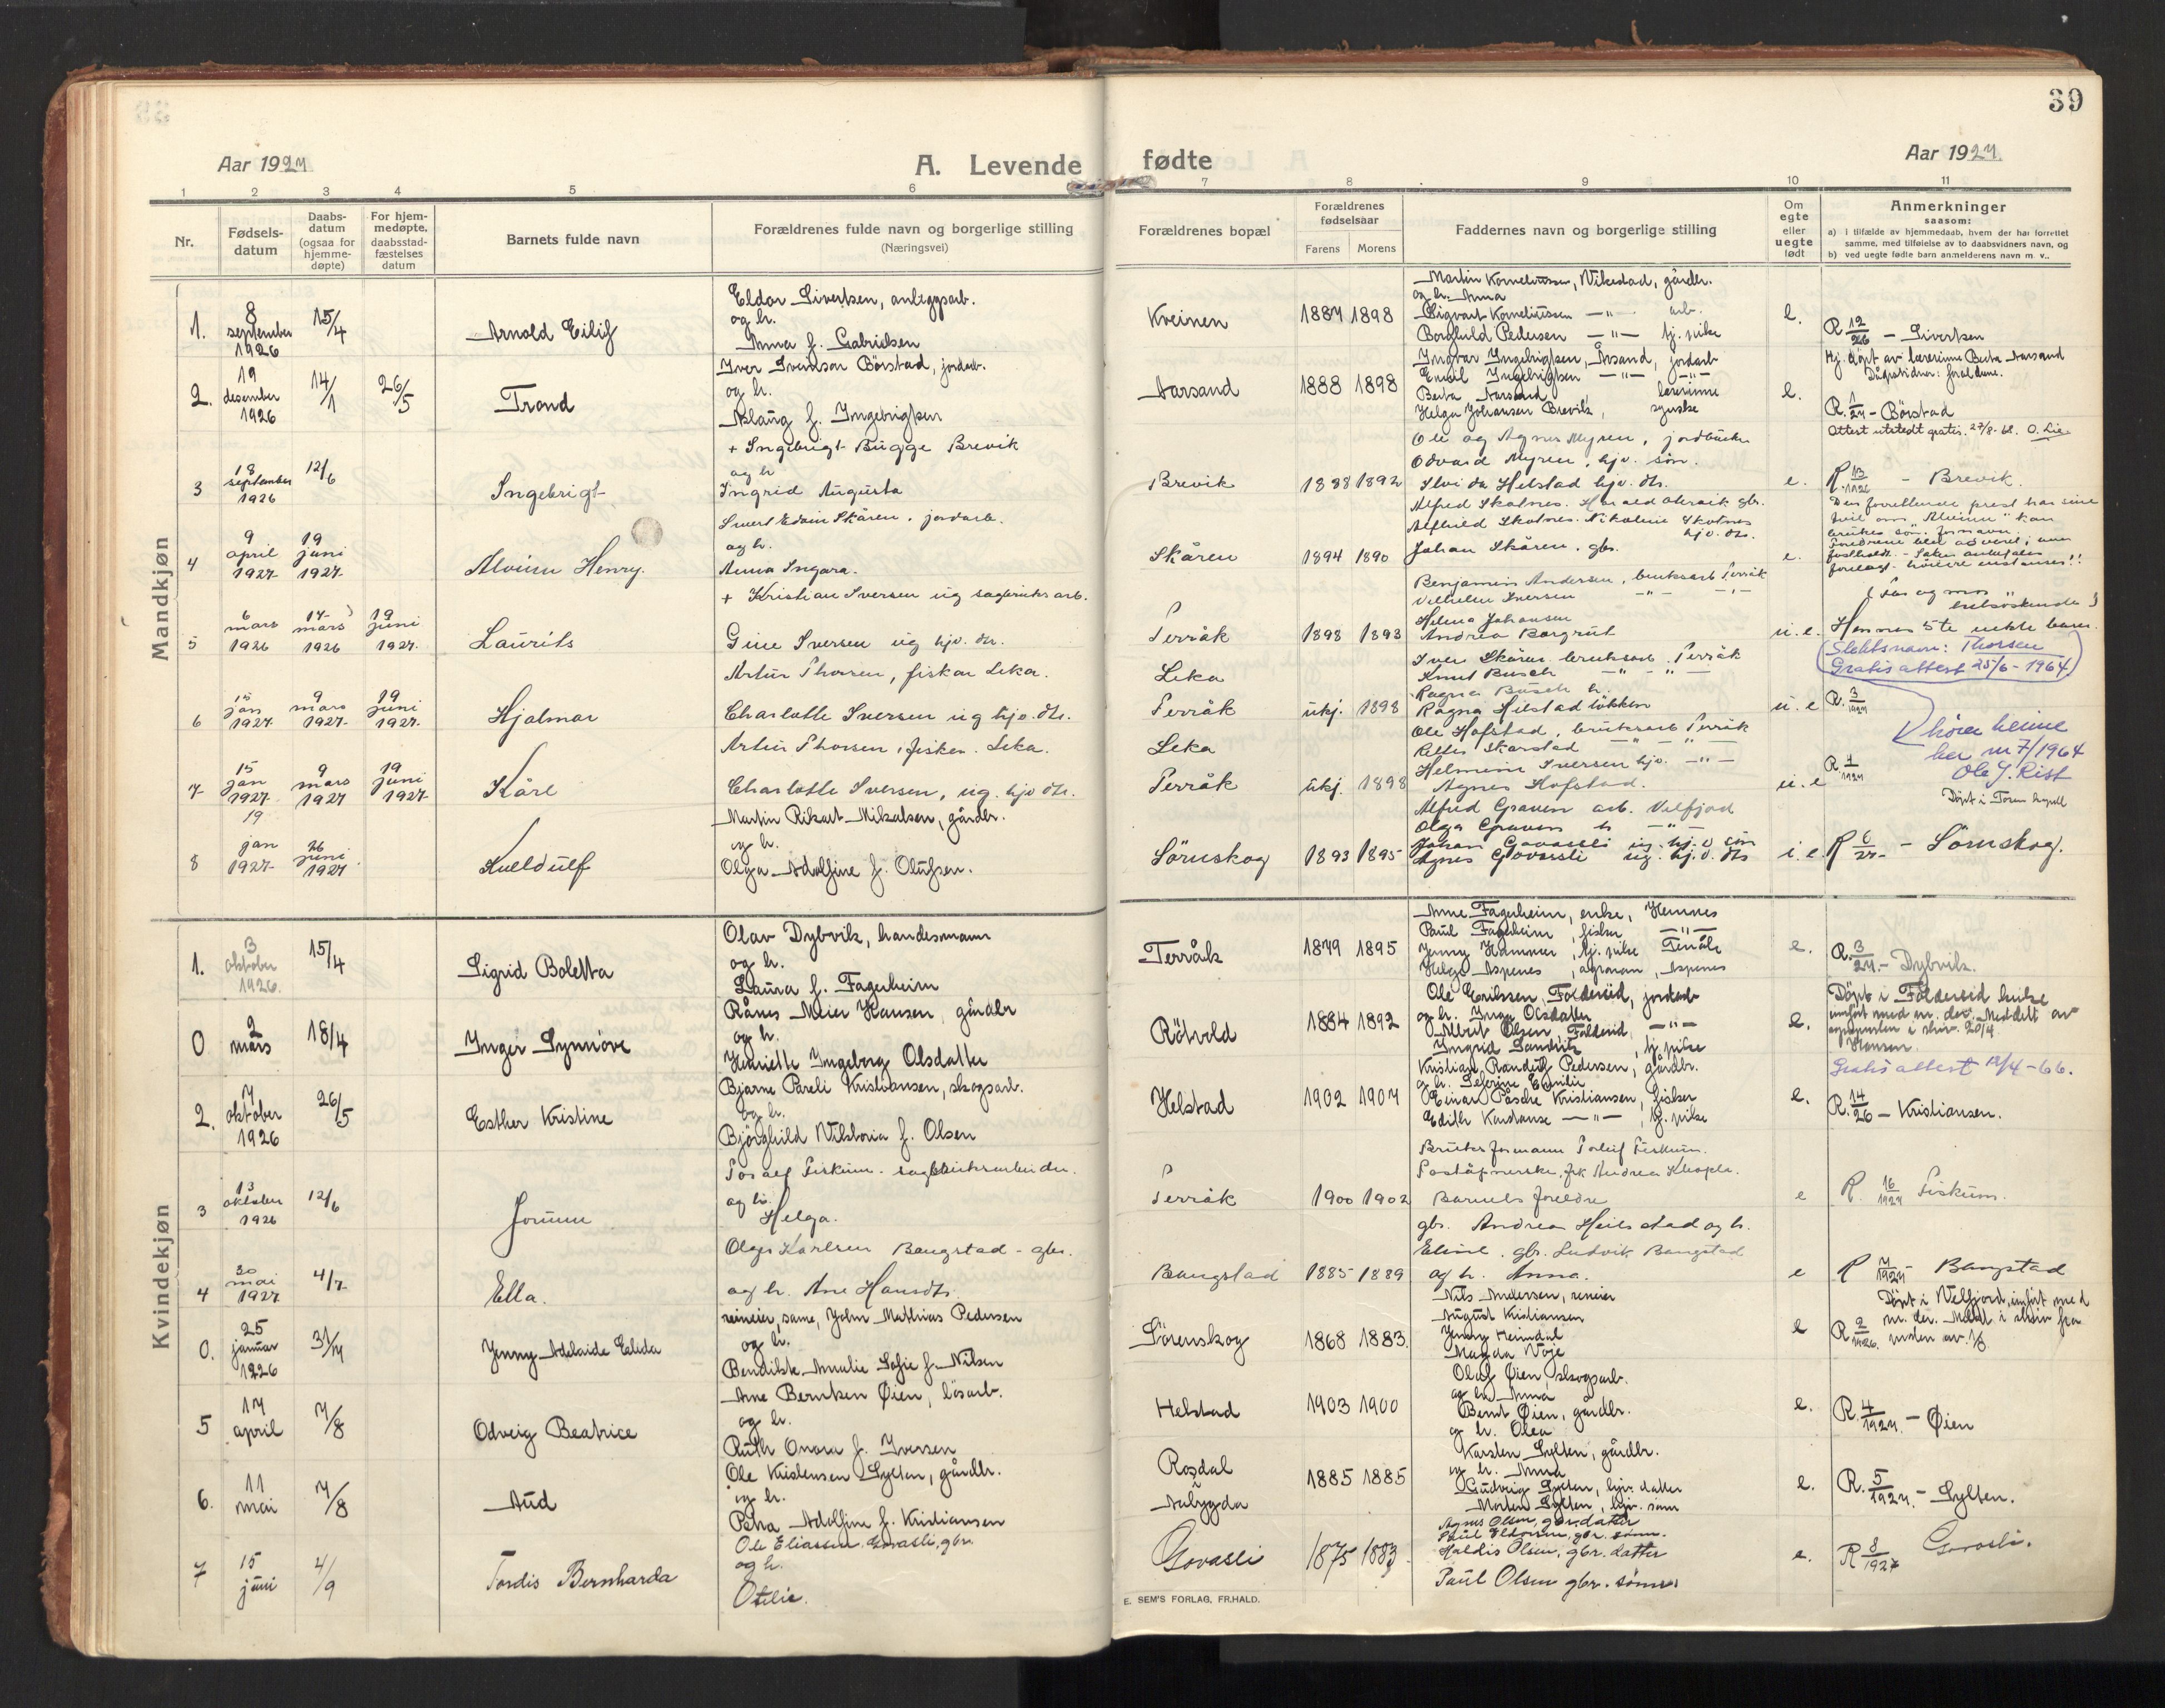 39
Aar 1927
A. Levende fødte
Aar 1927.
1 2 3 4 5 6 7 8 9 10 11
Nr.
Fødsels-
datum
Daabs-
datum
(ogsaa for
hjemme-
døpte)
For hjem-
medøpte.
daabsstad-
fæstelses
datum
Barnets fulde navn
Forældrenes fulde navn og borgerlige stilling
(Næringsvei)
Forældrenes bopæl
Forældrenes
fødselsaar
Farens Morens
Faddernes navn og borgerlige stilling
Om
egte
eller
uegte
født
Anmerkninger
saasom:
a) i tilfælde av hjemmedaab, hvem der har forrettet
samme, med tilføielse av to daabsvidners navn, og
b) ved uegte fødte barn anmelderens navn m. v..
Mandkjøn
1.
8
september
1926
15/4
Arnold Eilif
Eldor Sivertsen, anleggsarb.
og h.
Anna f. Gabrielsen
Kveinen
1887 1898
Martin Kornelinssen, Vikestad, gårdbr.
og h. Anna
Sigvart Kornelinssen —"— arb.
Borghild Pedersen —"— tj. pike
e.
R 12/26 - Sivertsen
2.
19
desember
1926
14/1
26/5
Trond
Iver Iverson Börstad, jordarb.
og h.
Aslaug f. Ingebrigtsen
Aarsand
1888 1898
Ingvar Ingebrigtsen, Årsand, jordarb
Emil Ingebrigtsen —"— —"—
Berta Aarsand, lærerinne
Helga Johansen Brevik, syerske
e.
Hj. döpt av lærerinne Berta Aarsand
Dåpsvidner: foreldrene.
R. 1/27 - Börstad
Attest utstedt gratis. 27/8-68. O. Lie
3
18
september
1926
12/6
Ingebrigt
+ Ingebrigt Bugge Brevik
og h
Ingrid Augusta
Brevik
1888 1892
Ole og Agnes Myren, jordbruker
Odvard Myren, hjv. søn.
Alfred Skotnes.
e.
R. 13/1926 - Brevik.
4
9
april
1927
19
juni
1927
Alvinn Henry.
Sivert Edvin Skåren, jordarb.
og h.
Anna Ingara.
Skåren
1894 1890
Alfhild Skotnes. Nikoline Skotnes
hjv. dtr.
Johan Skåren. gbr.
e.
Den forrettende prest har sine
tvil om "Alvinn" kan
brukes som fornavn.
5
6
mars
1926
17
mars
1926
19
juni
1927
Laurits
+ Kristian Iversen ug sagbruksarb.
Gine Iversen ug hjv. dtr.
Terråk
1898 1893
Benjamin Andersen, bruksarb Terråk
Vilhelm Iversen —"— —"—
Helena Johansen
Andrea Borgrut
u.e.
Hennes 5te uekte barn.
Slektsnavn: Thorsen
Gratis attest 25/6-1964
6
15
jan
1927
9
mars
1927
19
juni
1927
Hjalmar
Artur Thorsen, fisker Leka.
Charlotte Iversen ug hjv. dtr.
Leka
Terråk
ukj. 1898
Iver Skåren bruksarb. Terråk
Knut Busch —"— —"—
Ragna Busch h.
Ragna Heilstad løkken
u.e
R. 3/1927
hører hjemme
her nr 7/1964
Ole J. Rist
7
15
jan
1927
9
mars
1927
19
juni
1927
Kåre
Artur Thorsen, fisker. Leka.
Charlotte Iversen, ug. hjv dtr.
Leka
Terråk
ukj. 1898
Ole Hofstad, bruksarb Terråk
Helmine Iversen hjv. —"—
Agnes Hofstad.
u.e
R. 4/1927
8
19
jan
1927
26
juni
1927
Kveldulf
Martin Rikart Mikalsen, gårdbr.
og h.
Olga Adolfine f. Olufsen.
Sörnskog
1893 1895
Alfred Graven arb. Velfjord
Olga Graven h —"—
Johan Govassli ug. hj.v. søn
Agnes Govassli ug. hj.v. dtr
i.e.
Döpt i Toren kapell
R 6/27 - Sörnskog.
Kvindekjøn
1.
3
oktober
1926.
15/4
Sigrid Boletta
Olav Dybvik, handelsmann
og h.
Laura f. Fagerheim
Terråk
1879 1895
Anne Fagerheim, enke, Hemnes
Paul Fagerheim, fisker —"—
Jenny Hammer, tj. pike Terråk
Helge Aspenes, agronom, Aspenes
e.
R. 3/27. - Dybvik.
0
2
mars
18/4
Inger Synnöve
Rånes Meier Hansen, gårdbr
og h.
Henriette Ingeborg Olsdatter
Rötvold
1884 1892
Ole Eriksen, Foldereid, jordarb
og h. Inga Olsdatter
Albert Olsen, Foldereid, —"—
Ingrid Sandvik, tj. pike
e.
Döpt i Foldereid kirke
innført med nr. der. Meddelt av
sognepresten i skriv. 20/4
Hansen.
Gratis attest 12/4-66.
2.
7
oktober
1926
26/5
Esther Kristine
Bjarne Pareli Kristiansen, skogsarb.
og h.
Bjørghild Viktoria f. Olsen
Helstad
1902 1907
Kristian Randulf Pedersen, gårdbr.
og h. Seferine Emilie
Einar Påsche Kristiansen, fisker
Edith Konstanse —"—, tj. pike
e.
R. 14/26 - Kristiansen.
3
13
oktober
1926
12/6
Jorunn
Toralf Fiskum. sagbruksarbeider.
og h.
Helga.
Terråk
1900 1902
Bruksformann Torleif Fiskum.
Poståpnerske, frk Andrea Kleopla.
Barnets foreldre
e
R. 16/1927 Fiskum.
4
30
mai
1927
4/7
Ella.
Olaf Karlsen Bangstad - gbr.
og h. Ane Hansdtr.
Bangstad
1885 1889
gbr. Andreas Heilstad og h.
Eline. gbr. Ludvik Bangstad
og h. Anna.
e
R 7/1927 - Bangstad
0.
25
januar
1926
31/7
Jenny Adelaide Elida
reineier, same, John Mathias Pedersen
og h.
Bendikte Amalie Sofie f. Nilsen
Sörenskog
1868 1883.
Nils Andersen, reneier
August Kristiansen
Jenny Heimdal
Magda Voje
e
Döpt i Velfjord, innført med
nr. der. Meddelt i skriv fra
R 2/1926.
5
17
april
7/8
Odveig Beatrice
Arne Berntsen Øien, løsarb.
og h.
Ruth Onora f. Iversen
Helstad
1903 1900
Olaf Øien, skogsarb.
og h. Anna
Bernt Øien, gårdbr.
og h. Olea
e.
R. 4/1927. - Øien
6.
11
mai
7/8
Aud
Ole Kristensen Sylten, gårdbr.
og h.
Petra Adolfine f. Kristiansen
Rosdal
Åbygda
1885 1885
Karsten Sylten, gårdbr.
og h. Anna
Gudveig Sylten, hjv. datter
Morten Sylten, hjv. sønn
e.
R. 5/1927. - Sylten.
7
15
juni
4/9
Tordis Bernharda
Ole Eliassen Govasli, gbr.
og h.
Otelie.
Govasli
1875 1883
Agnes Olsen, gbr. datter
Haldis Olsen, gbr. datter
Paul Olsen gbr. sønn
e.
R 8/1927 Govasli.
E. SEM'S FORLAG, FR.HALD.